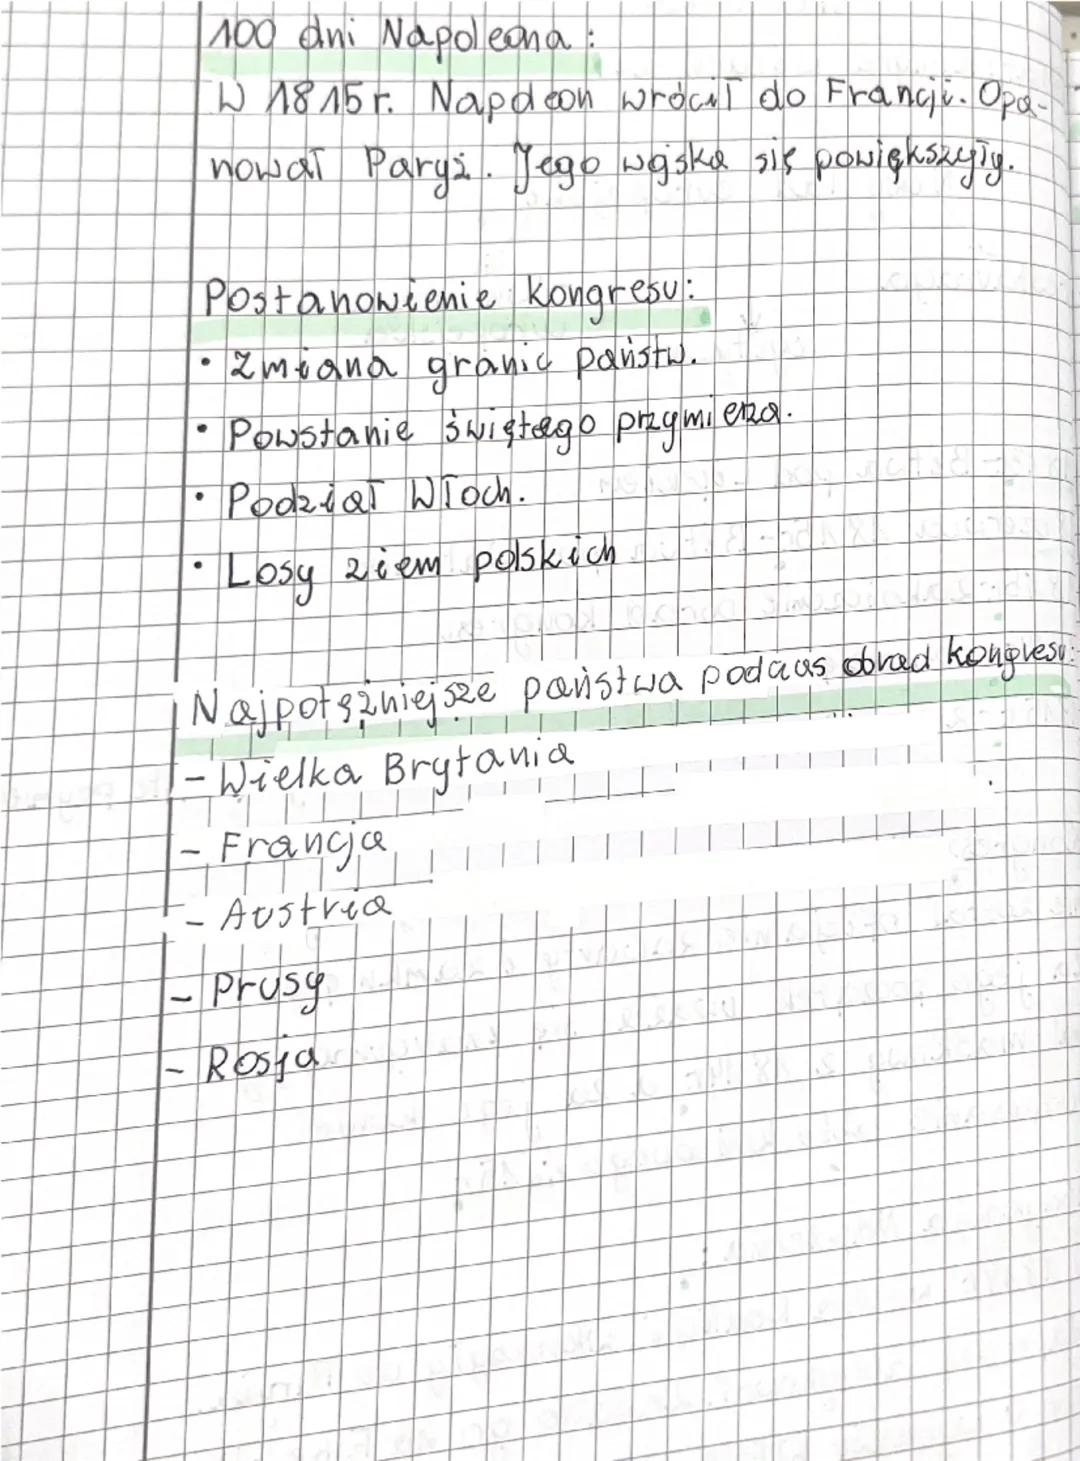 100 dni Napoleona:
W 1815r. Napoleon wrócił do Francji. Opa-
nował Paryż. Jego wojska się powiększyły.
Postanowienie kongresu:
• Zmiana granic państw.
• Powstanie świętego przymierza.
• Podział Włoch.
• Losy ziem polskich
Najpotężniejsze państwa podczas obrad kongresu:
- Wielka Brytania
- Francja
- Austria
- Prusy
- Rosja